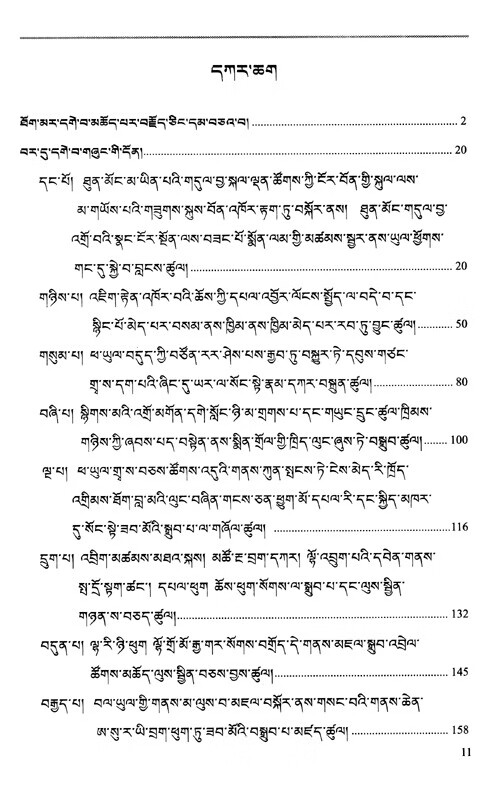 དཀར་ཆག
ཐོག་མར་དགེ་བ་མཆོད་པར་བརྗོད་ཅིང་དམ་བཅའ་བ། ........ 2
བར་དུ་དགེ་བ་གཞུང་གི་དོན། ........ 20
དང་པོ། ཐུན་མོང་མ་ཡིན་པའི་གདུལ་བྱ་སྐལ་ལྡན་ཚོགས་ཀྱི་ངོར་བོན་གྱི་སྐུལ་ལས་
མ་གཡོས་པའི་གཟུགས་སྐུས་བོན་འཁོར་རྟག་ཏུ་བསྐོར་ནས། ཐུན་མོང་གདུལ་བྱ་
འགྲོ་བའི་སྣང་ངོར་སྔོན་ལས་བཟང་པོ་སྨོན་ལམ་གྱི་མཚམས་སྦྱར་ནས་ཡུལ་ཕྱོགས་
གང་དུ་སྐྱེ་བ་བླངས་ཚུལ། ........ 20
གཉིས་པ། འཇིག་རྟེན་འཁོར་བའི་ཆོས་ཀྱི་དཔལ་འབྱོར་ལོངས་སྤྱོད་ལ་བདེ་བ་དང་
སྙིང་པོ་མེད་པར་བསམ་ནས་ཁྱིམ་ནས་ཁྱིམ་མེད་པར་རབ་ཏུ་བྱུང་ཚུལ། ........ 50
གསུམ་པ། ཕ་ཡུལ་བདུད་ཀྱི་བཙོན་རར་ཤེས་པས་རྒྱབ་ཏུ་བསྐྱུར་ཏེ་དབུས་གཙང་
གྲྭ་ས་དག་པའི་ཞིང་དུ་ཡར་ལ་སོང་སྟེ་རྣམ་དཀར་བསྒྲུན་ཚུལ། ........ 80
བཞི་པ། སྙིགས་མའི་འགྲོ་མགོན་དགེ་སློང་ཉི་མ་གྲགས་པ་དང་གཡུང་དྲུང་ཚུལ་ཁྲིམས་
གཉིས་ཀྱི་ཞབས་པད་བསྟེན་ནས་སྨིན་གྲོལ་གྱི་ཁྲིད་ལུང་ཞུས་ཏེ་བསྒྲུབ་ཚུལ། ........ 100
ལྔ་པ། ཕ་ཡུལ་གྲྭ་ས་བཅས་ཚོགས་འདུའི་གནས་ཀུན་སྤངས་ཏེ་ངེས་མེད་རི་ཁྲོད་
འགྲིམས་ཐོག་བླ་མའི་ལུང་བཞིན་གངས་ཅན་ཕྱུག་མོ་དཔལ་རི་དང་སྐྱིད་མཁར་
དུ་སོང་སྟེ་ཟབ་མོའི་སྒྲུབ་པ་ལ་གཞོལ་ཚུལ། ........ 116
དྲུག་པ། འབྲིག་མཚམས་མཐའ་སྐས། མཚོ་ཇ་བྲག་དཀར། ལྷོ་འབྲུག་པའི་དབེན་གནས་
སྤ་དྲོ་སྟག་ཚང་། དཔལ་ཕུག ཆོས་ཕུག་སོགས་ལ་སྒྲུབ་པ་དང་ལུས་སྦྱིན་
གཉན་ས་བཅད་ཚུལ། ........ 132
བདུན་པ། ལྷ་རི་ཉི་ཕུག ལྷོ་གྲོ་མོ་རྒྱ་གར་སོགས་བགྲོད་དེ་གནས་མཇལ་སྒྲུབ་འབྲེལ་
ཚོགས་མཆོད་ལུས་སྦྱིན་བཅས་བྱས་ཚུལ། ........ 145
བརྒྱད་པ། བལ་ཡུལ་གྱི་གནས་མ་ལུས་བ་མཇལ་བསྐོར་ནས་གསང་བའི་གནས་ཆེན་
ཨ་སུ་ར་ཡི་བྲག་ཕུག་ཏུ་ཟབ་མོའི་བསྒྲུབ་པ་མཛད་ཚུལ། ........ 158
11